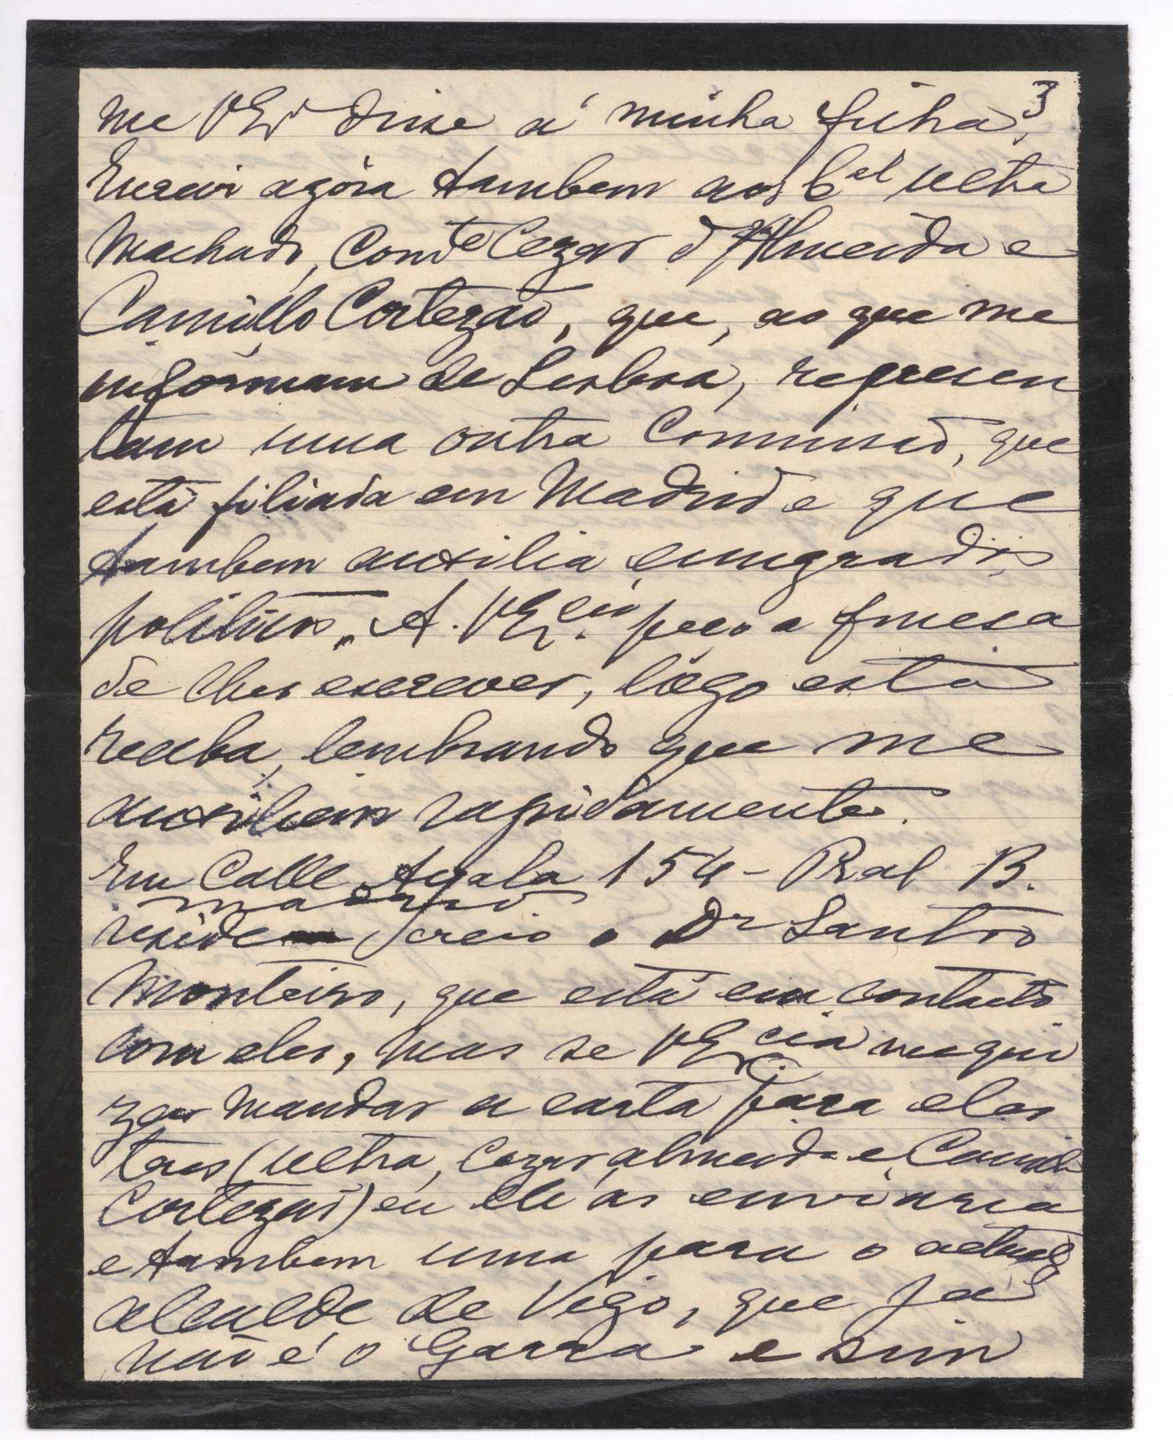 3
me VEx disse á minha filha.
Escrevi agóra tambem aos Cel Ultra
Machado, Comte Cezar d'Almeida e
Camillo Cortezão, que, ao que me
informam de Lisboa, represen
tam uma outra Commissão, que
está filiada em Madrid e que
tambem auxilia emigrados
politicos. A. VExcia peço a fineza
de lhes escrever, lógo esta
receba, lembrando que me
auxiliem rapidamente.
Em Calle Ayala 154 - Pral B.
Madrid
reside creio o Dr Santos
Monteiro, que está em contacto
com eles, mas se VExcia me qui
zer mandar a carta para eles
tres (Ultra, Cezar Almeida e Camillo
Cortezão) eu lh'as enviaria
e tambem uma para o actual
alcalde de Vigo, que já
não é o Garra e sim